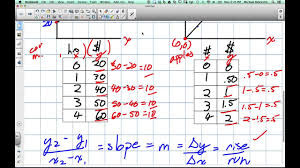 x
x
(0,0)
apples
hrs $
x y
0 20
1 30
2 40
3 50
4 60
30-20=10
40-30=10
50-40=10
60-50=10
# $
x y
0 0
1 .50
2 1
3 1.5
4 2
.5-0=.5
1-.5=.5
1.5-1=.5
2-1.5=.5
y2-y1
x2-x1
= slope = m = Δy = rise
Δx run